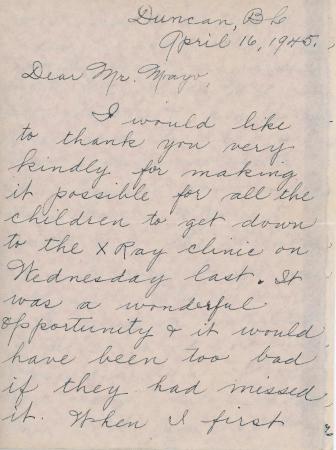 Duncan, B C
April 16, 1945.
Dear Mr. Mayo,
I would like
to thank you very
kindly for making
it possible for all the
children to get down
to the X Ray clinic on
Wednesday last. It
was a wonderful
opportunity & it would
have been too bad
if they had missed
it. When I first